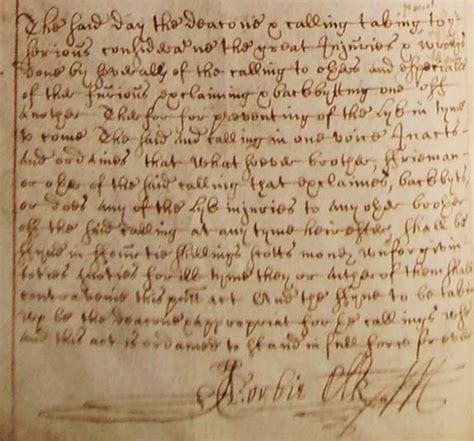 The said day the deacone & calling taking to yr
serious consideraⁿe the great Injuries & wrongs
done by severalls of the calling to oyers and especiallie
of ther Injurious exclaiming & backbytting one off
another Therfor for preventing of the lyk in tyme
to come The said And calling in one voice Inacts
and ordaines that what soever brother, ffrieman
or oyer of the said calling that exclaimes, backbyts,
or does any of the lyk injuries to any oyer brother
off the said calling at any tyme heirefter, shall be
ffynd in ffourtie shillings scotts money unforgivin
toties quoties for ilk tyme they or aither of them shall
contravene this pnt act And the ffyne to be taken
up be the deacone & appropriat for ye callings use
and this act is ordained to stand in full force for ever
Clk